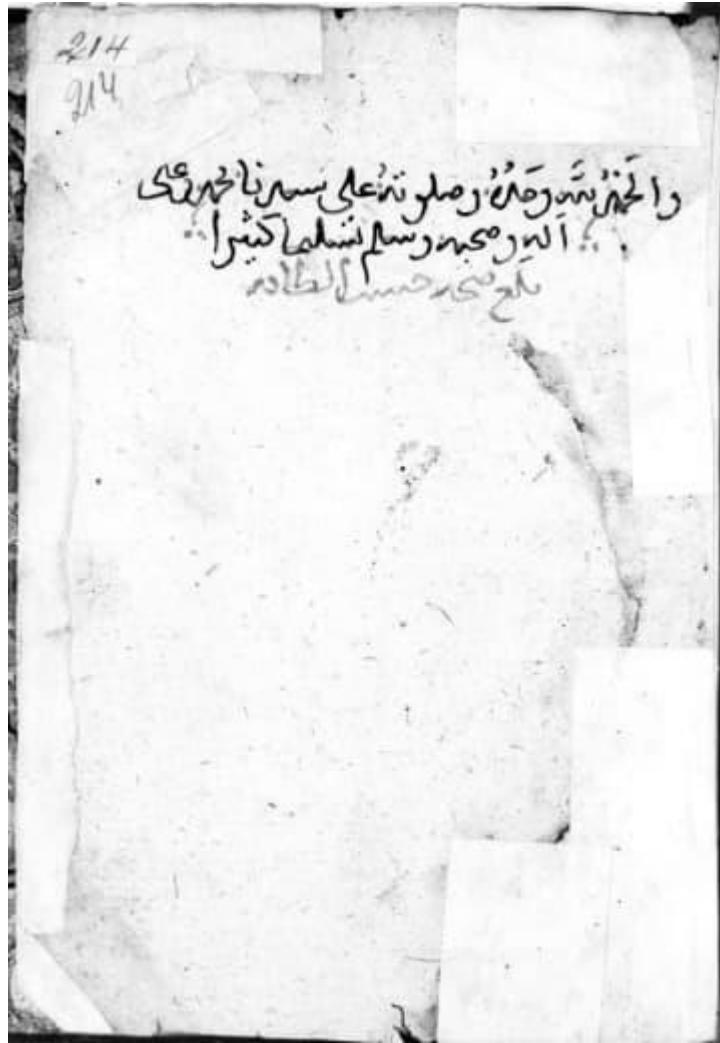 214
214
والحمد لله وحده وصلوته على سيدنا محمد وعلى
آله وصحبه وسلم تسليما كثيرا
بلغ